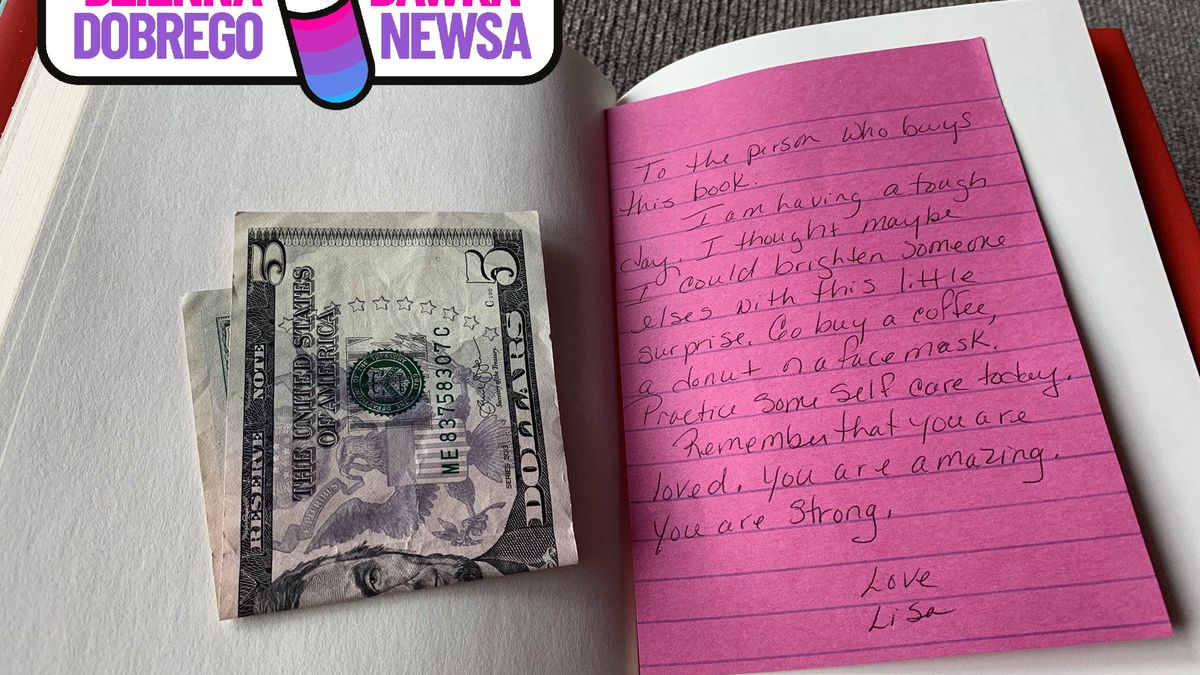 DZIENNA DAWKA
DOBREGO NEWSA
5
5
THE UNITED STATES
OF AMERICA
RESERVE NOTE
ME83758307C
Secretary of the Treasury.
SERIES 2013
To the person who buys
this book:
I am having a tough
day. I thought maybe
I could brighten someone
elses with this little
surprise. Go buy a coffee,
a donut or a face mask.
Practice some self care today.
Remember that you are
loved. You are amazing.
You are strong.
Love
Lisa